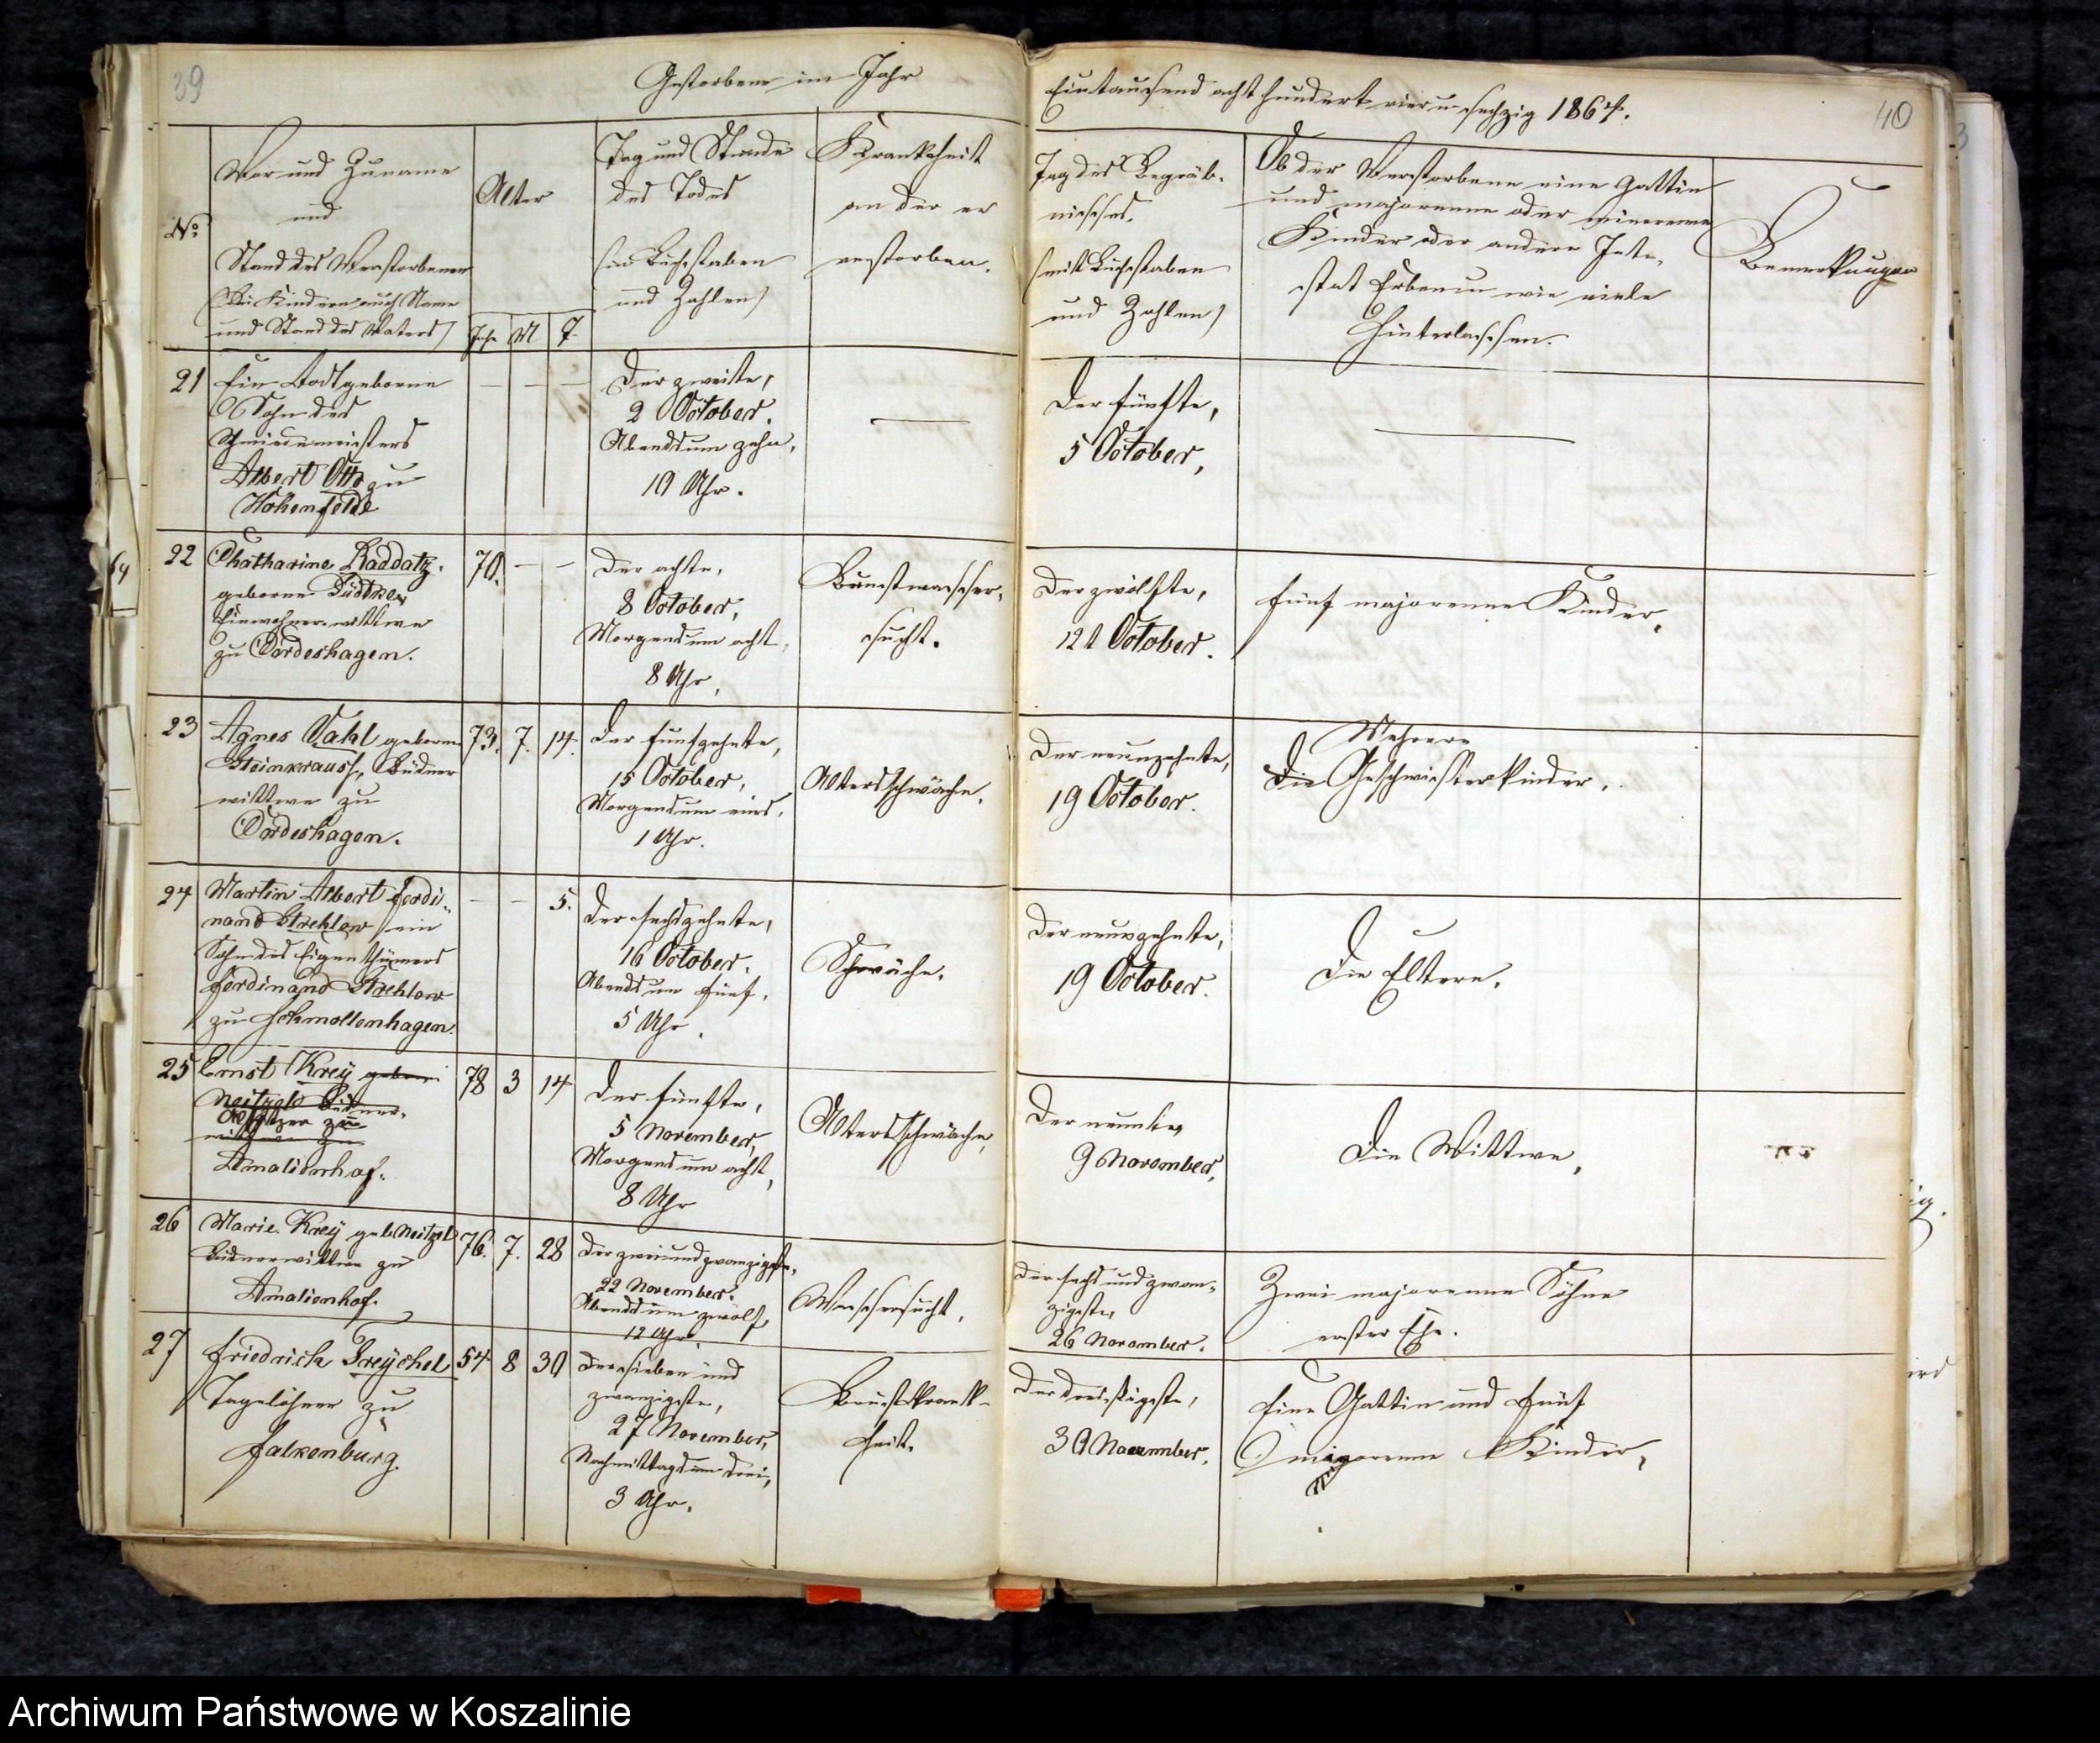 39
Gestorbene im Jahr
No
Vor und Zuname
und
Stand des Verstorbenen
(Bei Kindern auch Name
und Stand des Vaters)
Alter
Jahr M T.
Tag und Stunde
des Todes
(in Buchstaben
und Zahlen)
Krankheit
an der er
verstorben.
21
Ein Todtgeborne
Sohn des
Schmiedemeisters
Albert Otto zu
Hohenfelde
— — —
Der zweite,
2 October.
Abends um zehn,
10 Uhr.
—
22
Chatharine Raddatz.
geborne Lüdtke
Einwohner wittwe
zu Cordeshagen.
70. — —
Der achte,
8 October,
Morgens um acht,
8 Uhr,
Brustwasser-
sucht.
23
Agnes Vahl geborne
Steinkrauss, Büdner
wittwe zu
Cordeshagen.
73. 7. 14.
Der funfzehnte,
15 October,
Morgens um eins,
1 Uhr.
Altersschwäche.
24
Martin Albert Ferdi-
nand Strehlow ein
Sohn des Eigenthümers
Ferdinand Strehlow
zu Schmollenhagen.
— — 5.
Der sechszehnte,
16 October.
Abends um fünf,
5 Uhr.
Schwäche.
25
Ernst Krey geborne
Neitzel Büdner-
zu
wittwe zu
Amalienhof.
78 3 14
Der fünfte,
5 November,
Morgens um acht,
8 Uhr
Altersschwäche,
26
Marie Krey geb. Neitzel
Büdnerwittwe zu
Amalienhof.
76. 7. 28
Der zweiundzwanzigste,
22 November.
Abends um zwölf,
12 Uhr
Wassersucht.
27
Friedrich Treychel
Tagelöhner zu
Falkenburg.
54 8 30
Der sieben und
zwanzigste,
27 November,
Nachmittags um drei,
3 Uhr.
Brustkrank-
heit.
Eintausend acht hundert vier u sechzig 1864.
40
Tag des Begräb-
nisses.
(mit Buchstaben
und Zahlen)
Ob der Verstorbene eine Gattin
und majorenne oder minorenne
Kinder oder andere Inte-
stat Erben u wie viele
Hinterlassen.
Bemerkungen
Der fünfte,
5 October,
—
Der zwölfte,
12 October.
Fünf majorenne Kinder.
Der neunzehnte,
19 October.
Mehrere
Die Geschwisterkinder.
Der neunzehnte,
19 October.
Die Eltern.
Der neunte,
9 November,
Die Wittwe,
Der sechs und zwan-
zigste,
26 November.
Zwei majorenne Söhne
erster Ehe.
Der dreissigste,
30 November.
Eine Gattin und fünf
majorenne Kinder,
Archiwum Państwowe w Koszalinie